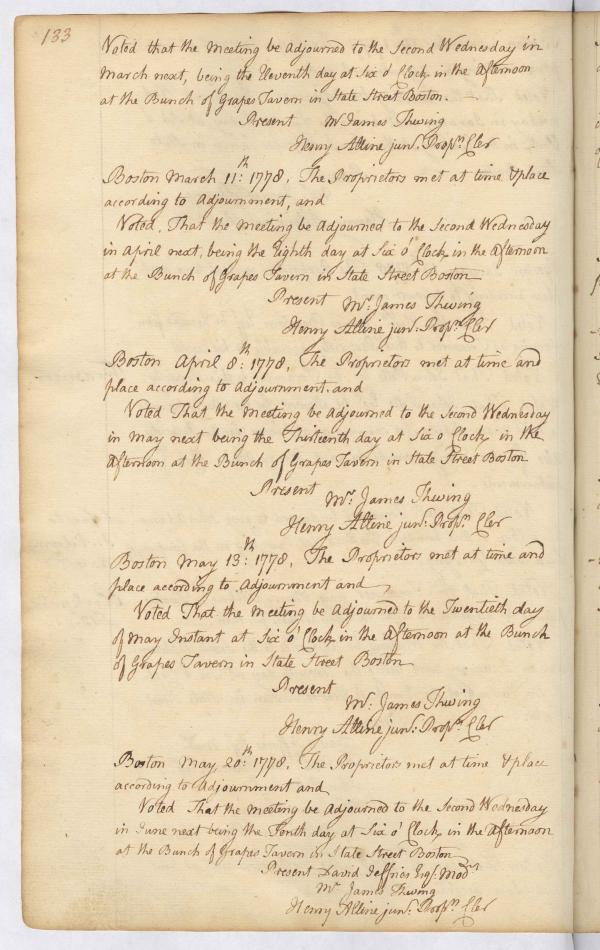 133
Voted that the Meeting be Adjourned to the Second Wednesday in
March next, being the Eleventh day at Six o' Clock in the Afternoon
at the Bunch of Grapes Tavern in State Street Boston.
Present Mr James Thwing
Henry Alline junr. Propn. Cler
Boston March 11th: 1778. The Proprietors met at time & place
according to Adjournment, and
Voted, That the Meeting be Adjourned to the Second Wednesday
in April next, being the Eighth day at Six o' Clock in the Afternoon
at the Bunch of Grapes Tavern in State Street Boston
Present Mr. James Thwing
Henry Alline junr: Propn. Cler
Boston April 8th: 1778, The Proprietors met at time and
place according to Adjournment. and
Voted That the Meeting be Adjourned to the Second Wednesday
in May next being the Thirteenth day at Six o Clock in the
Afternoon at the Bunch of Grapes Tavern in State Street Boston
Present Mr. James Thwing
Henry Alline junr: Propn. Cler
Boston May 13th: 1778, The Proprietors met at time and
place according to Adjournment and
Voted That the Meeting be Adjourned to the Twentieth day
of May Instant at Six o' Clock in the Afternoon at the Bunch
of Grapes Tavern in State Street Boston
Present
Mr. James Thwing
Henry Alline junr: Propn. Cler
Boston May 20th: 1778. The Proprietors met at time & place
according to Adjournment and
Voted That the Meeting be Adjourned to the Second Wednesday
in June next being the Tenth day at Six o' Clock in the Afternoon
at the Bunch of Grapes Tavern in State Street Boston
Present David Jeffries Esqr: Modr
Mr James Thwing
Henry Alline junr: Propn. Cler